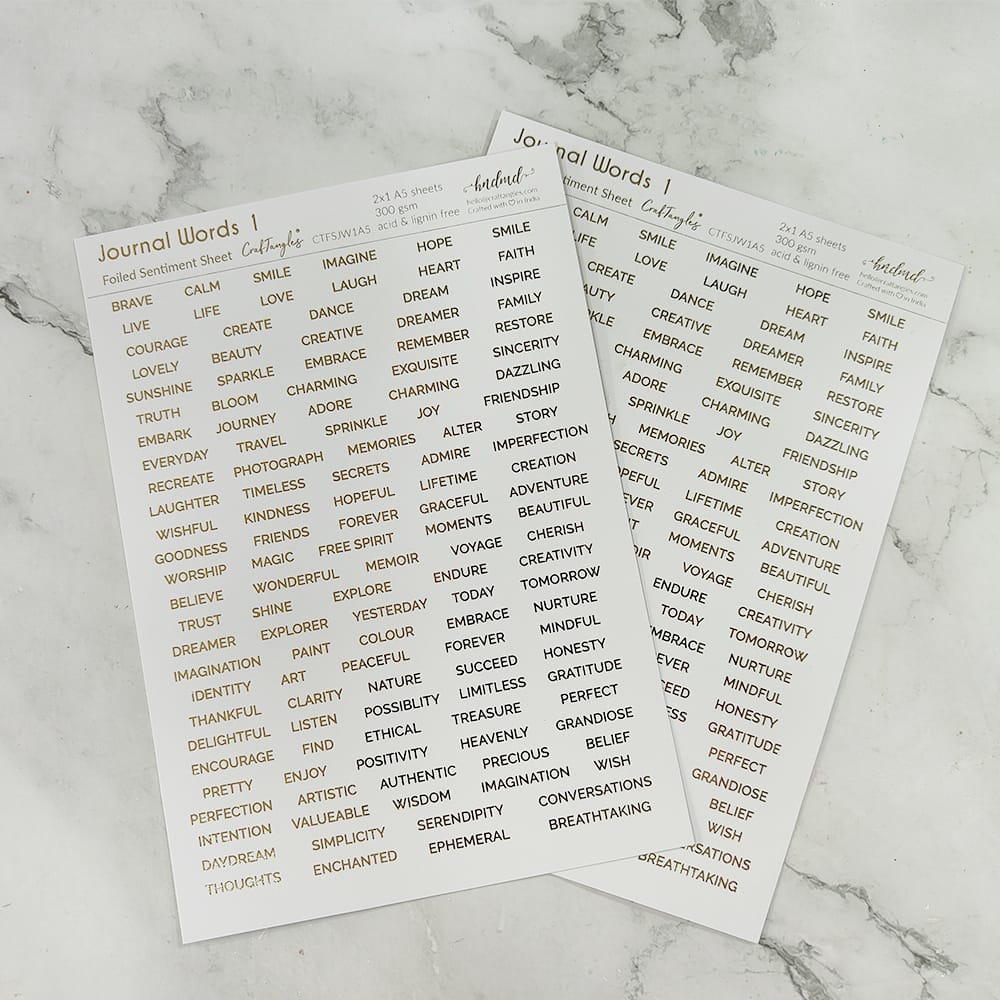 Journal Words 1
Foiled Sentiment Sheet CrafTangles CTFSJW1A5
2x1 A5 sheets
300 gsm
acid & lignin free
hndmd
hello@craftangles.com
Crafted with ♡ in India
BRAVE CALM SMILE IMAGINE HOPE SMILE
LIVE LIFE LOVE LAUGH HEART FAITH
COURAGE CREATE DANCE DREAM INSPIRE
LOVELY BEAUTY CREATIVE DREAMER FAMILY
SUNSHINE SPARKLE EMBRACE REMEMBER RESTORE
TRUTH BLOOM CHARMING EXQUISITE SINCERITY
EMBARK JOURNEY ADORE CHARMING DAZZLING
EVERYDAY TRAVEL SPRINKLE JOY FRIENDSHIP
RECREATE PHOTOGRAPH MEMORIES ALTER STORY
LAUGHTER TIMELESS SECRETS ADMIRE IMPERFECTION
WISHFUL KINDNESS HOPEFUL LIFETIME CREATION
GOODNESS FRIENDS FOREVER GRACEFUL ADVENTURE
WORSHIP MAGIC FREE SPIRIT MOMENTS BEAUTIFUL
BELIEVE WONDERFUL MEMOIR VOYAGE CHERISH
TRUST SHINE EXPLORE ENDURE CREATIVITY
DREAMER EXPLORER YESTERDAY TODAY TOMORROW
IMAGINATION PAINT COLOUR EMBRACE NURTURE
IDENTITY ART PEACEFUL FOREVER MINDFUL
THANKFUL CLARITY NATURE SUCCEED HONESTY
DELIGHTFUL LISTEN POSSIBLITY LIMITLESS GRATITUDE
ENCOURAGE FIND ETHICAL TREASURE PERFECT
PRETTY ENJOY POSITIVITY HEAVENLY GRANDIOSE
PERFECTION ARTISTIC AUTHENTIC PRECIOUS BELIEF
INTENTION VALUEABLE WISDOM IMAGINATION WISH
DAYDREAM SIMPLICITY SERENDIPITY CONVERSATIONS
THOUGHTS ENCHANTED EPHEMERAL BREATHTAKING
Journal Words 1
Sentiment Sheet CrafTangles CTFSJW1A5
2x1 A5 sheets
300 gsm
acid & lignin free
hndmd
hello@craftangles.com
Crafted with ♡ in India
CALM SMILE IMAGINE HOPE SMILE
LIFE LOVE LAUGH HEART FAITH
CREATE DANCE DREAM INSPIRE
AUTY CREATIVE DREAMER FAMILY
KLE EMBRACE REMEMBER RESTORE
CHARMING EXQUISITE SINCERITY
ADORE CHARMING DAZZLING
SPRINKLE JOY FRIENDSHIP
H MEMORIES ALTER STORY
SECRETS ADMIRE IMPERFECTION
PEFUL LIFETIME CREATION
VER GRACEFUL ADVENTURE
T MOMENTS BEAUTIFUL
OIR VOYAGE CHERISH
ENDURE CREATIVITY
TODAY TOMORROW
MBRACE NURTURE
EVER MINDFUL
EED HONESTY
ESS GRATITUDE
PERFECT
GRANDIOSE
BELIEF
WISH
ERSATIONS
BREATHTAKING